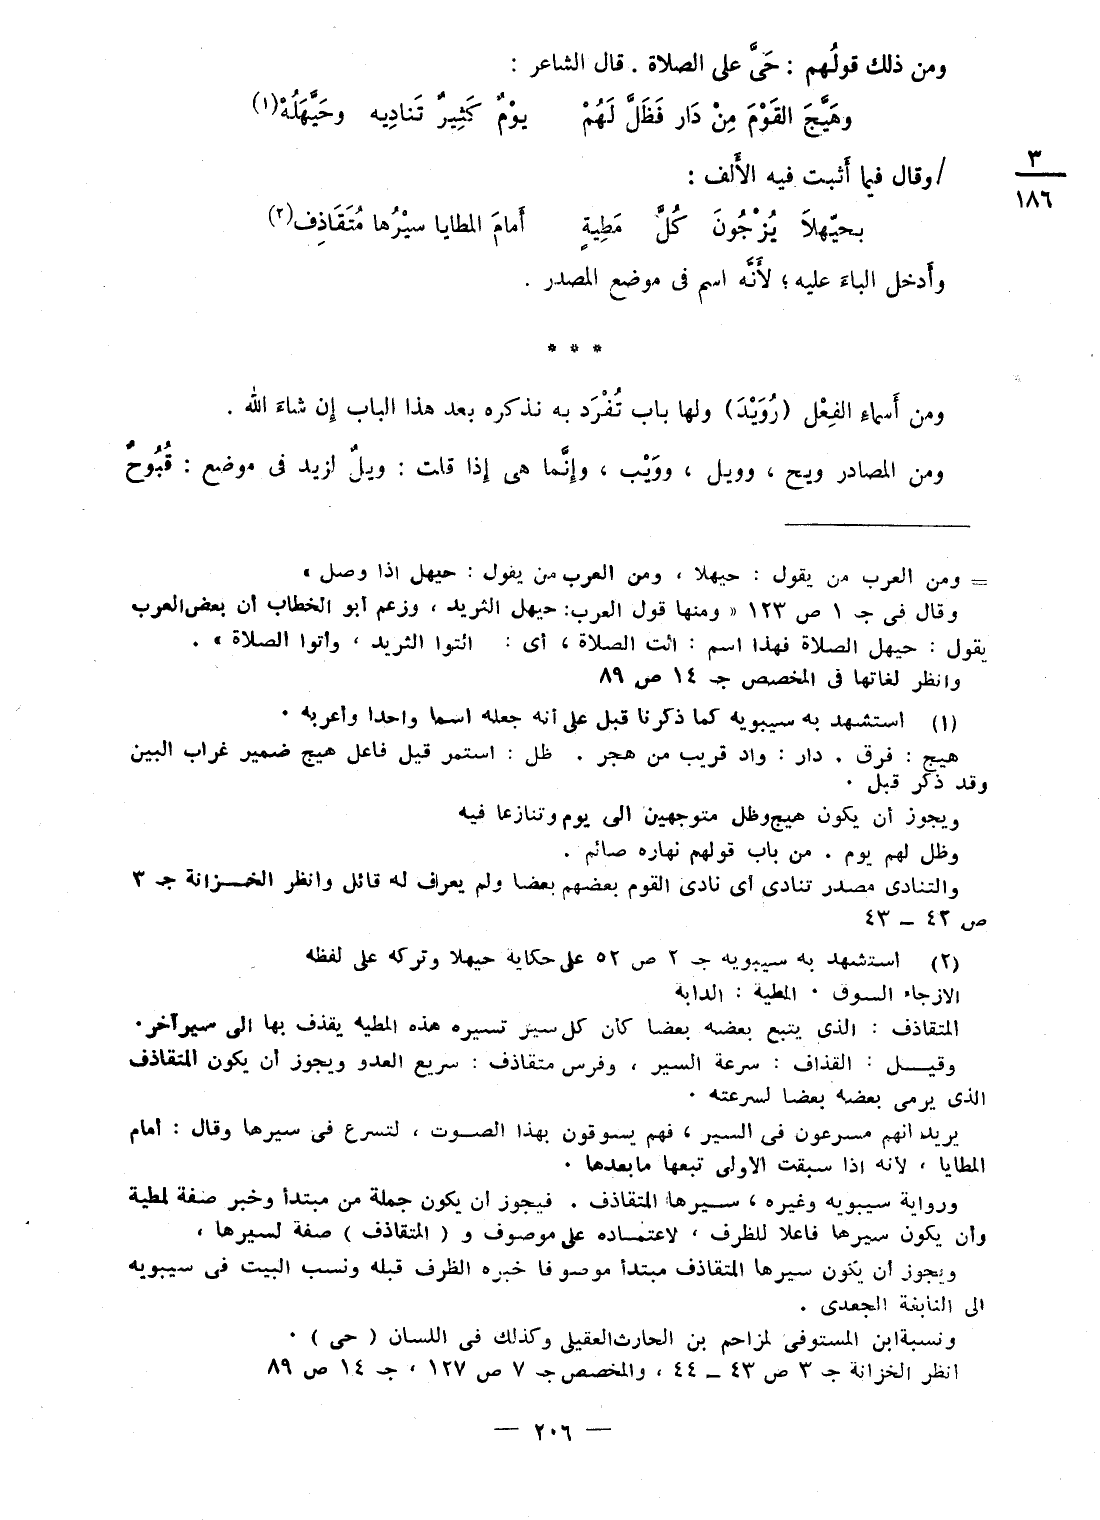 ومن ذلك قولُهم : حَىَّ على الصلاة . قال الشاعر :
وهَيَّجَ القَوْمَ مِنْ دَار فَظَلَّ لَهُمْ يوْمٌ كَثِيرٌ تَنادِيه وحَيَّهَلُهْ(١)
٣
١٨٦
/ وقال فيما أَثبت فيه الأَلف :
بحيّهلاَ يُزْجُونَ كُلَّ مَطِيةٍ أَمامَ المطايا سيْرُها مُتَقَاذِف(٢)
وأَدخل الباءَ عليه ؛ لأَنَّه اسم فى موضع المصدر .
* * *
ومن أَسماءِ الفِعْل (رُوَيْدَ) ولها باب تُفْرَد به نذكره بعد هذا الباب إِن شاءَ الله .
ومن المصادر ويح ، وويل ، ووَيْب ، وإِنَّما هى إِذا قلت : ويلٌ لزيد فى موضع : قُبُوحٌ
= ومن العرب من يقول : حيهلا ، ومن العرب من يقول : حيهل اذا وصل »
وقال فى جـ ١ ص ١٢٣ « ومنها قول العرب: حيهل الثريد ، وزعم أبو الخطاب أن بعض العرب
يقول : حيهل الصلاة فهذا اسم : ائت الصلاة ، أى : ائتوا الثريد ، وأتوا الصلاة » .
وانظر لغاتها فى المخصص جـ ١٤ ص ٨٩
(١) استشهد به سيبويه كما ذكرنا قبل على أنه جعله اسما واحدا وأعربه .
هيج : فرق . دار : واد قريب من هجر . ظل : استمر قيل فاعل هيج ضمير غراب البين
وقد ذكر قبل .
ويجوز أن يكون هيج وظل متوجهين الى يوم وتنازعا فيه
وظل لهم يوم . من باب قولهم نهاره صائم .
والتنادى مصدر تنادى أى نادى القوم بعضهم بعضا ولم يعراف له قائل وانظر الخـزانة جـ ٣
ص ٤٢ ــ ٤٣
(٢) استشهد به سيبويه جـ ٢ ص ٥٢ على حكاية حيهلا وتركه على لفظه
الازجاء السوق . المطية : الدابة
المتقاذف : الذى يتبع بعضه بعضا كان كل سير تسيره هذه المطيه يقذف بها الى سير آخر .
وقيــل : القذاف : سرعة السير ، وفرس متقاذف : سريع العدو ويجوز أن يكون المتقاذف
الذى يرمى بعضه بعضا لسرعته .
يريد انهم مسرعون فى السير ، فهم يسوقون بهذا الصـوت ، لتسرع فى سيرها وقال : أمام
المطايا ، لأنه اذا سبقت الاولى تبعها مابعدها .
ورواية سيبويه وغيره ، سـيرها المتقاذف . فيجوز أن يكون جملة من مبتدأ وخبر صفة لمطية
وأن يكون سيرها فاعلا للظرف ، لاعتمـاده على موصوف و ( المتقاذف ) صفة لسيرها ،
ويجوز أن يكون سيرها المتقاذف مبتدأ موصوفا خبره الظرف قبله ونسب البيت فى سيبويه
الى النابغة الجعدى .
ونسبة ابن المستوفى لمزاحم بن الحارث العقيلى وكذلك فى اللسان ( حى ) .
انظر الخزانة جـ ٣ ص ٤٣ ــ ٤٤ ، والمخصص جـ ٧ ص ١٢٧ ، جـ ١٤ ص ٨٩
— ٢٠٦ —